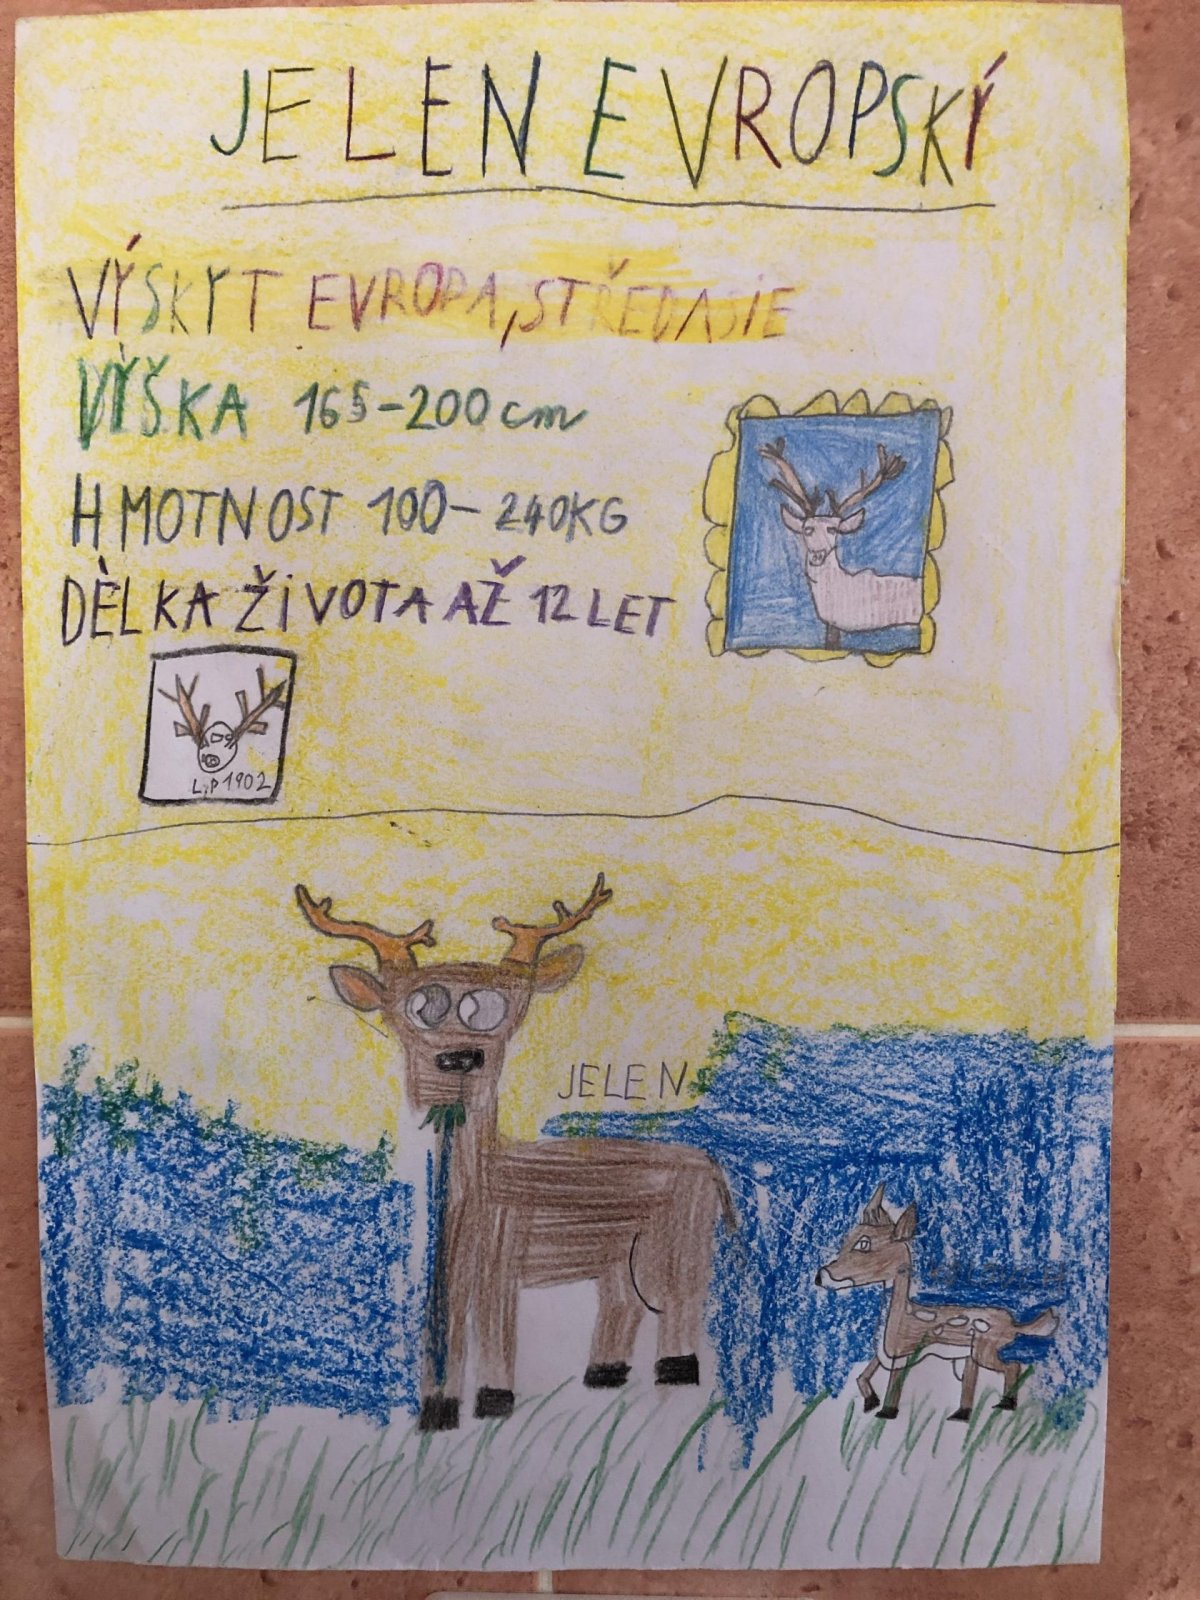 JELEN EVROPSKÝ
VÝSKYT EVROPA, STŘEDASIE
VÝŠKA 165-200 cm
HMOTNOST 100-240KG
DÉLKA ŽIVOTA AŽ 12 LET
L.P 1902
JELEN